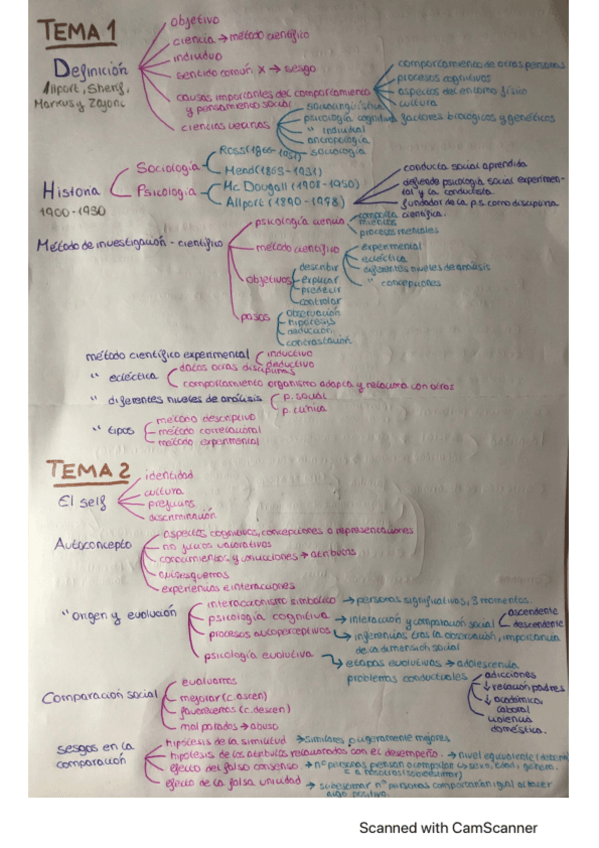 TEMA 1
objetivo
ciencia → método científico
individuo
sentido común x → sesgo
Definición
Allport, Sherif,
Markus y Zajonc
causas importantes del comportamiento
y pensamiento social
comportamiento de otras personas
procesos cognitivos
aspectos del entorno físico
cultura
ciencias vecinas
sociolingüística
psicología cognitiva
factores biológicos y genéticos
" individual
antropología
sociología
Historia
1900-1930
Sociología
Ross (1866-1951)
Mead (1863-1931)
Psicología
Mc Dougall (1908-1950)
Allport (1890-1978)
conducta social aprendida
defiende psicología social experimen-
tal y la conductista
fundador de la p.s. como disciplina
científica.
Método de investigación - científico
psicología ciencia
procesos mentales
método científico
experimental
ecléctica
diferentes niveles de análisis
" concepciones
objetivos
describir
explicar
predecir
controlar
pasos
observación
hipótesis
deducción
contrastación
método científico experimental
inductivo
deductivo
" ecléctica
datos otras disciplinas
comportamiento organismo adapta y relaciona con otros
" diferentes niveles de análisis
p. social
p. clínica
" tipos
método descriptivo
método correlacional
método experimental
TEMA 2
El self
identidad
cultura
prejuicios
discriminación
Autoconcepto
aspectos cognitivos, concepciones o representaciones
no juicios valorativos
conocimientos y convicciones → atributos
autoesquemas
experiencias e interacciones
" origen y evolución
interaccionismo simbólico → personas significativas, 3 momentos.
psicología cognitiva → interacción y comparación social
ascendente
descendente
procesos autoperceptivos → inferencias tras la observación, importancia
de la dimensión social
psicología evolutiva → etapas evolutivas → adolescencia
problemas conductuales
adicciones
↓ relación padres
↓ académica
laboral
violencia
doméstica.
Comparación social
evaluarnos
mejorar (c. ascen)
favorecernos (c. descen)
mal parados → abuso
sesgos en la
comparación
hipótesis de la similitud → similares o ligeramente mejores
hipótesis de los atributos relacionados con el desempeño. → nivel equivalente
efecto del falso consenso. → nº personas piensan o comportan
sexo, edad, género.
= a nosotros (sobreestimar)
efecto de la falsa unicidad → subestimar nº personas comportarían igual al hacer
algo positivo.
Scanned with CamScanner